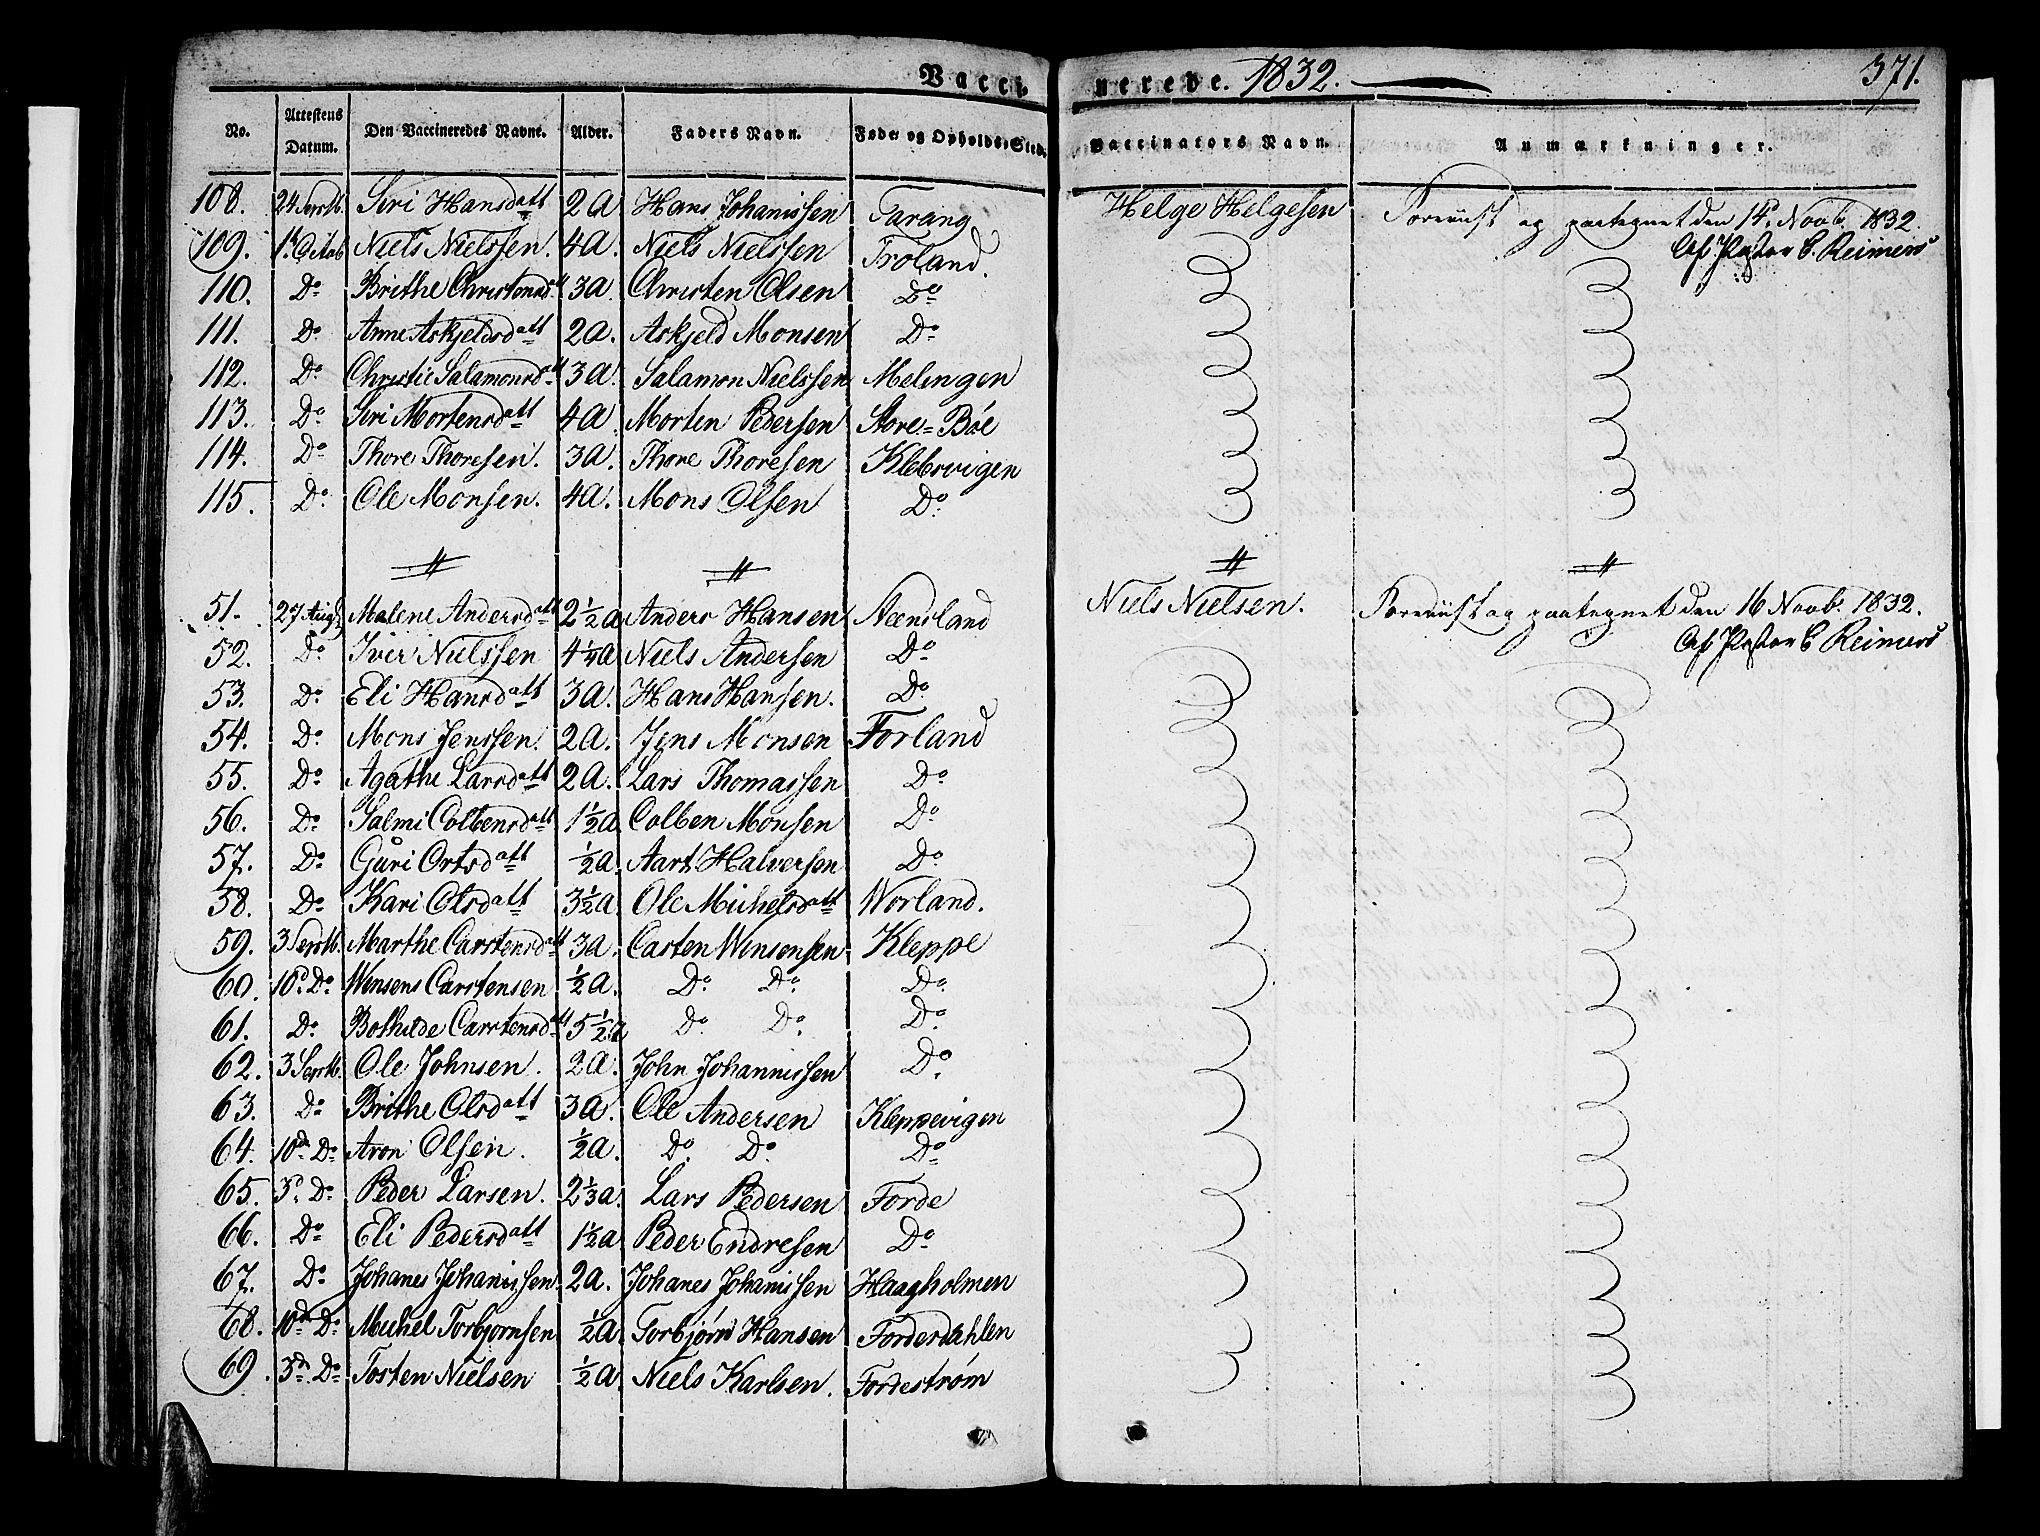 Vaccinerede. 1832. 371.
No. Attestens Datum. Den Vaccineredes Navne. Alder. Faders Navn. Føde- og Opholds-Sted. Vaccinators Navn. Anmærkninger.
108. 24 Septb. Siri Hansdatt 2 A Hans Johanissen Tarang Helge Helgesen Foreviist og paategnet den 14de Novb. 1832.
Af Pastor C. Reimers
109. 1st Octob Niels Nielssen. 4 A. Niels Nielssen Troland.
110. Do Brithe Christensd 3 A Christen Olsen Do
111. Do Anne Askjeldsdatt 2 A. Askjeld Monsen Do
112. Do Christie Salamonsdatt 3 A. Salamon Nielssen Melingen
113. Do Siri Mortensdatt 4 A Morten Pedersen Store-Bøe
114. Do Thore Thoresen. 3 A. Thore Thoresen Klebsvigen
115. Do Ole Monsen. 4 A. Mons Olsen Do
51. 27 Aug Malene Andersdatt 2½ A Anders Hansen Steensland Niels Nielsen. Foreviist og paategnet den 16 Novb. 1832.
Af Pastor C Reimers
52. Do Iver Nielssen 4¼ A Niels Andersen Do
53. Do Eli Hansdatt 3 A. Hans Hansen. Do
54. Do Mons Jenssen. 2 A. Jens Monsen Forland
55. Do Agathe Larsdatt 2 A. Lars Thomassen Do
56. Do Salmi Colbensdatt 1½ A Colben Monsen Do
57. Do Guri Ortsdatt ½ A. Aart Halversen Do
58. Do Kari Olsdatt 3½ A. Ole Michelsdatt Worland.
59. 3 Septb. Marthe Carstensdatt 3 A. Casten Winsensen Kleppe
60. 10de Do Winsens Carstensen ½ A. Do Do Do
61. Do Bothilde Carstensdatt 5½ A Do Do Do
62. 3 Septb. Ole Johnsen. 2 A. John Johannissen Do
63. Do Brithe Olsdatt 3 A. Ole Andersen Kleppevigen
64. 10de Do Aron Olsen. ½ A. Do Do Do
65. 3de Do Peder Larsen. 2⅓ A. Lars Pedersen Forde
66. Do Eli Pedersdatt 1½ A Peder Endresen Do
67. Do Johanes Johanissen 2 A. Johanes Johanissen Haagholmen
68. 10de Do Michel Torbjornsen ½ A Torbjørn Hansen Forderdahlen
69. 3de Do Tosten Nielsen ½ A. Niels Karlsen. Fordestrøm